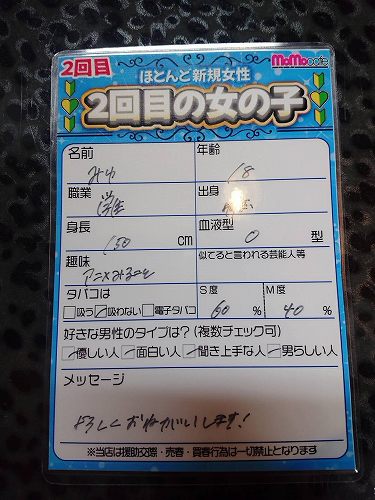 2回目
MoMo cafe
ほとんど新規女性
2回目の女の子
名前
みゆ
年齢
18
職業
学生
出身
身長
150 cm
血液型
O 型
趣味
アニメみること
似てると言われる芸能人等
タバコは
吸う 吸わない 電子タバコ
S度
60 %
M度
40 %
好きな男性のタイプは?(複数チェック可)
優しい人 面白い人 聞き上手な人 男らしい人
メッセージ
よろしくおねがいします!
※当店は援助交際・売春・買春行為は一切禁止となります